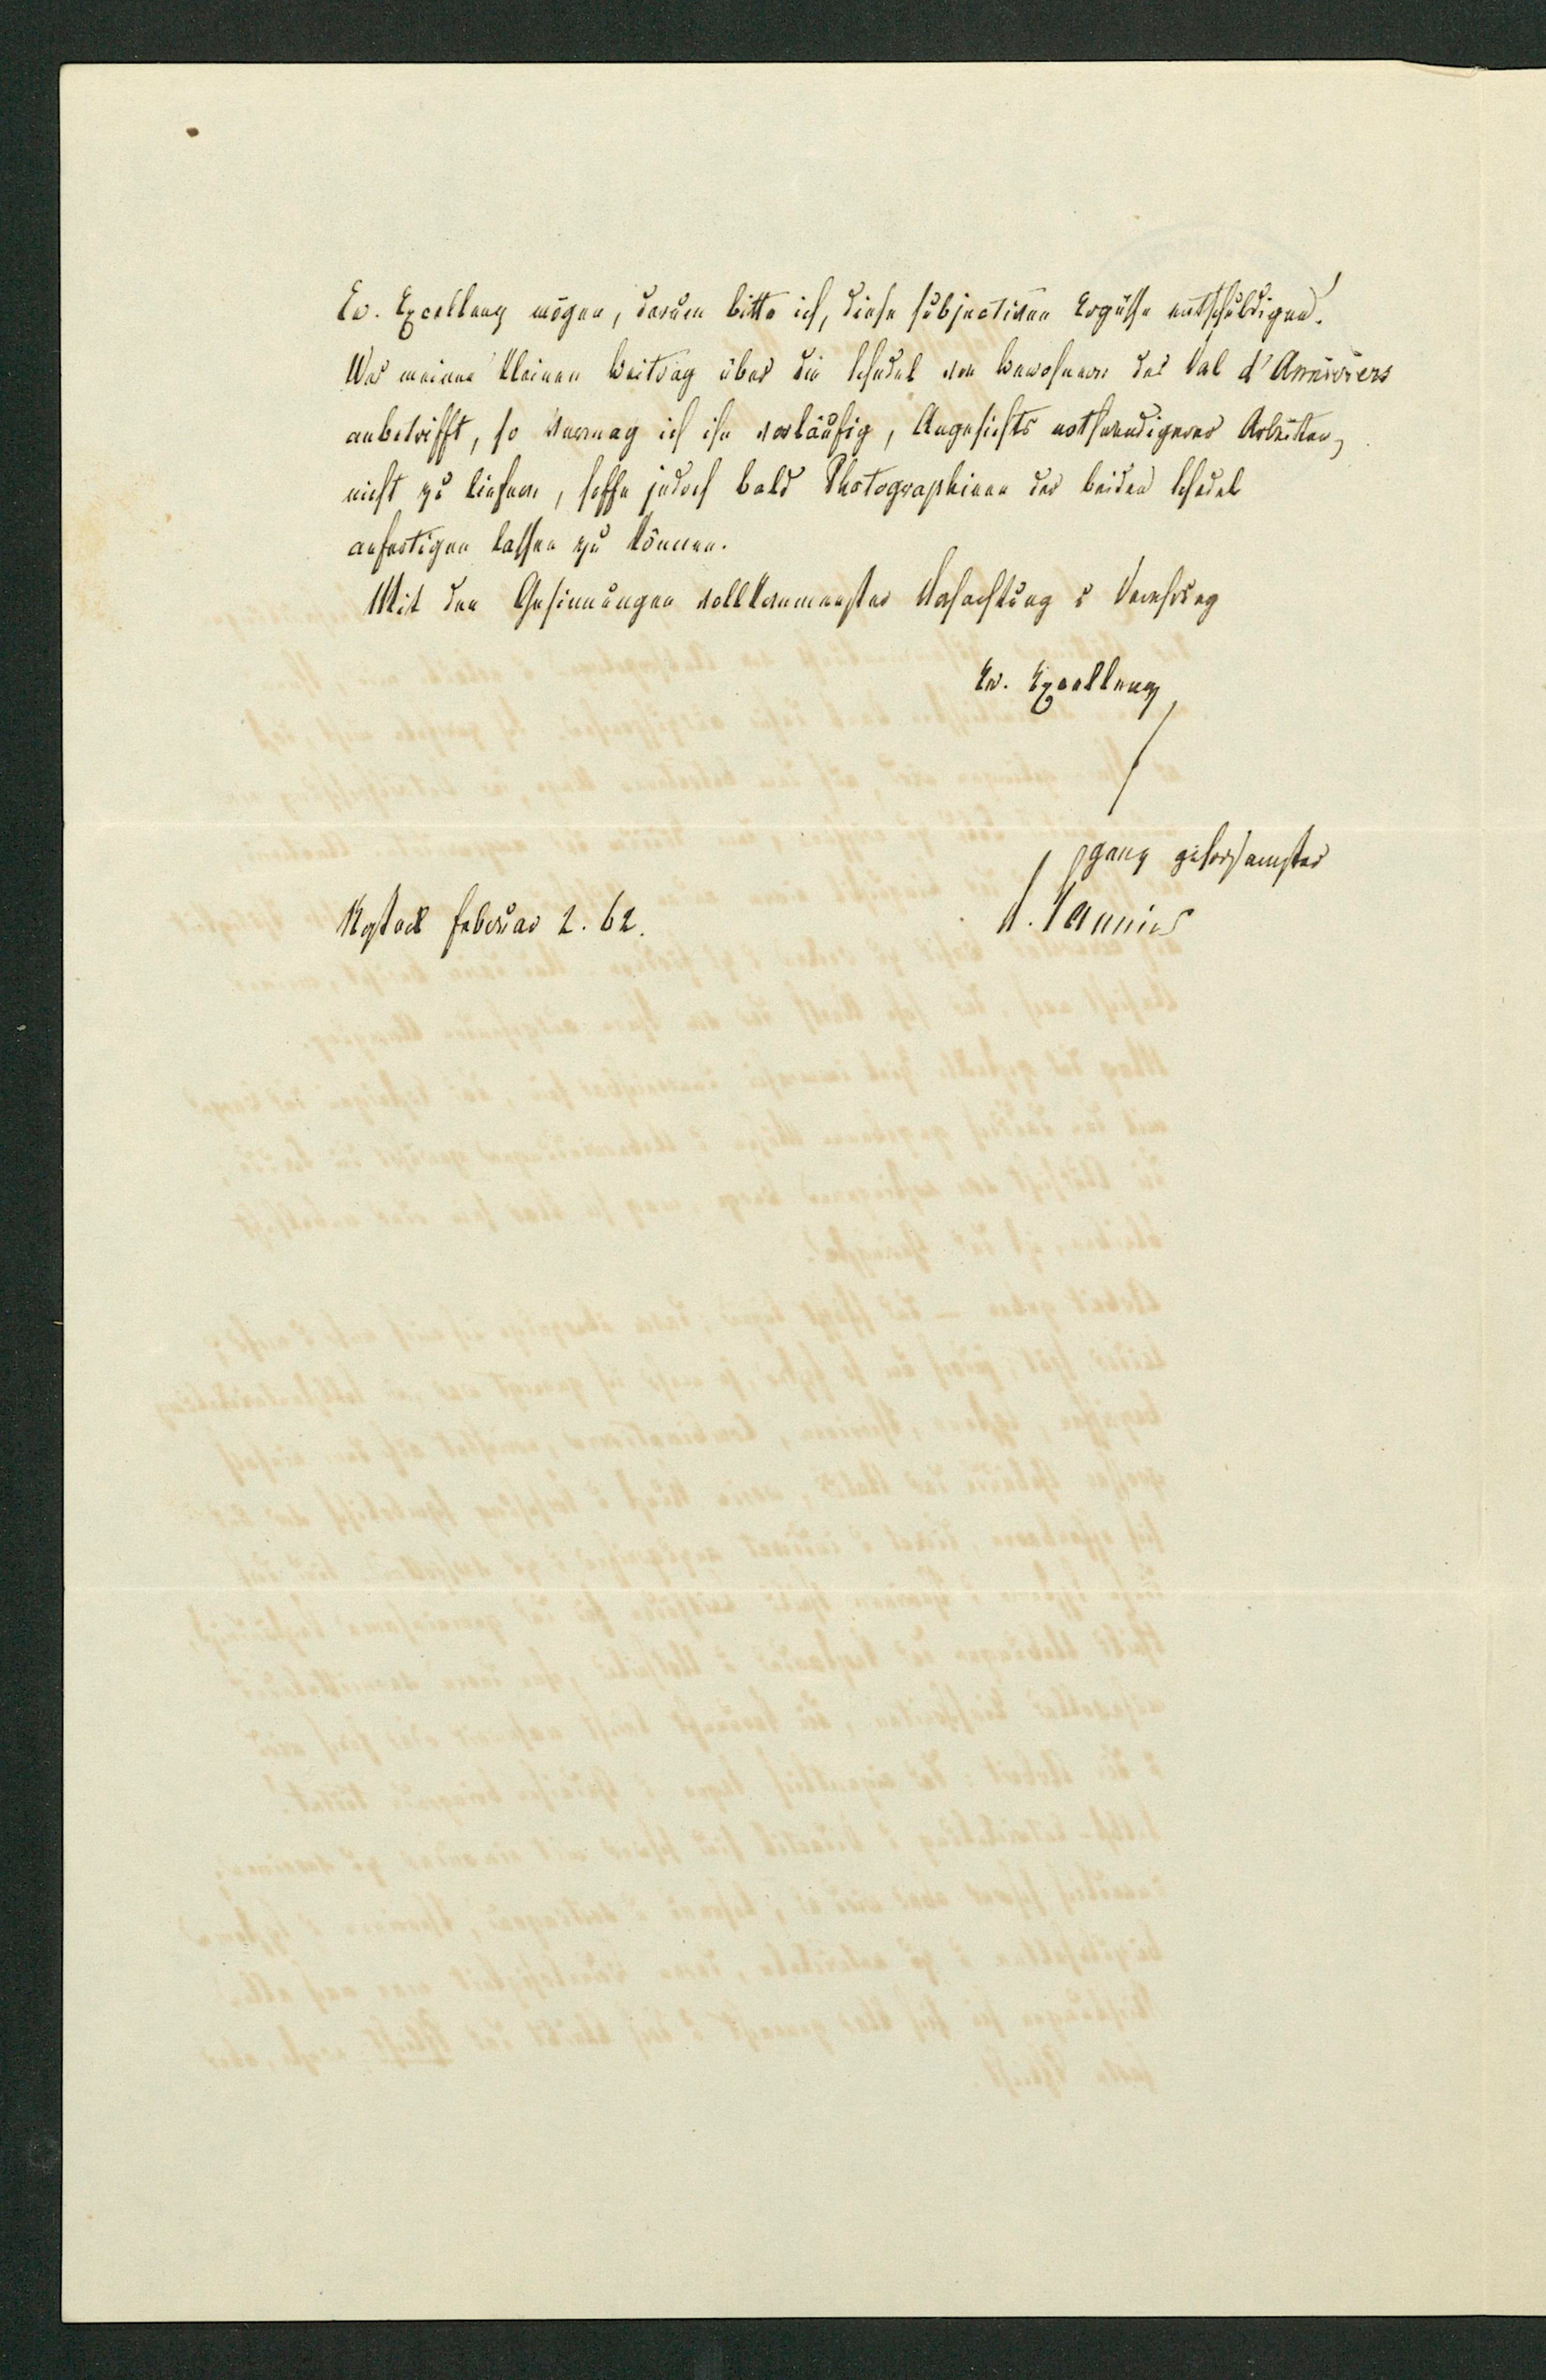 Ew. Excellenz mögen, darum bitte ich, diese subjectiven Ergüsse entschuldigen!
Was meinen kleinen Beitrag über die Schedel von Bewohnern des Val d'Anniviers
anbetrifft, so vermag ich ihn vorläufig, Angesichts nothwendigerer Arbeiten,
nicht zu liefern, hoffe jedoch bald Photographieen der beiden Schedel
anfertigen lassen zu können.
Mit den Gesinnungen vollkommenster Hochachtung u Verehrung
Ew. Excellenz
ganz gehorsamster
Rostock Februar 2. 62.